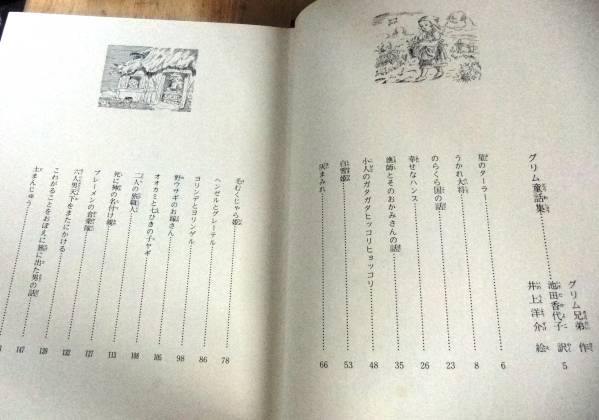 グリム童話集 5
グリム兄弟 作
池田香代子 訳
井上洋介 絵
星のターラー 6
うかれ大将 8
のらくら国の話 23
幸せなハンス 26
漁師とそのおかみさんの話 35
小人のガタガタヒッコリヒョッコリ 48
白雪姫 53
灰まみれ 66
毛むくじゃら姫 78
ヘンゼルとグレーテル 86
ヨリンデとヨリンゲル 98
野ウサギのお嫁さん 105
オオカミと七ひきの子ヤギ 108
二人の旅職人 113
死に神の名付け親 127
ブレーメンの音楽隊 132
六人男天下をまたにかける 139
こわがることをおぼえに旅に出た男の話 147
土まんじゅう